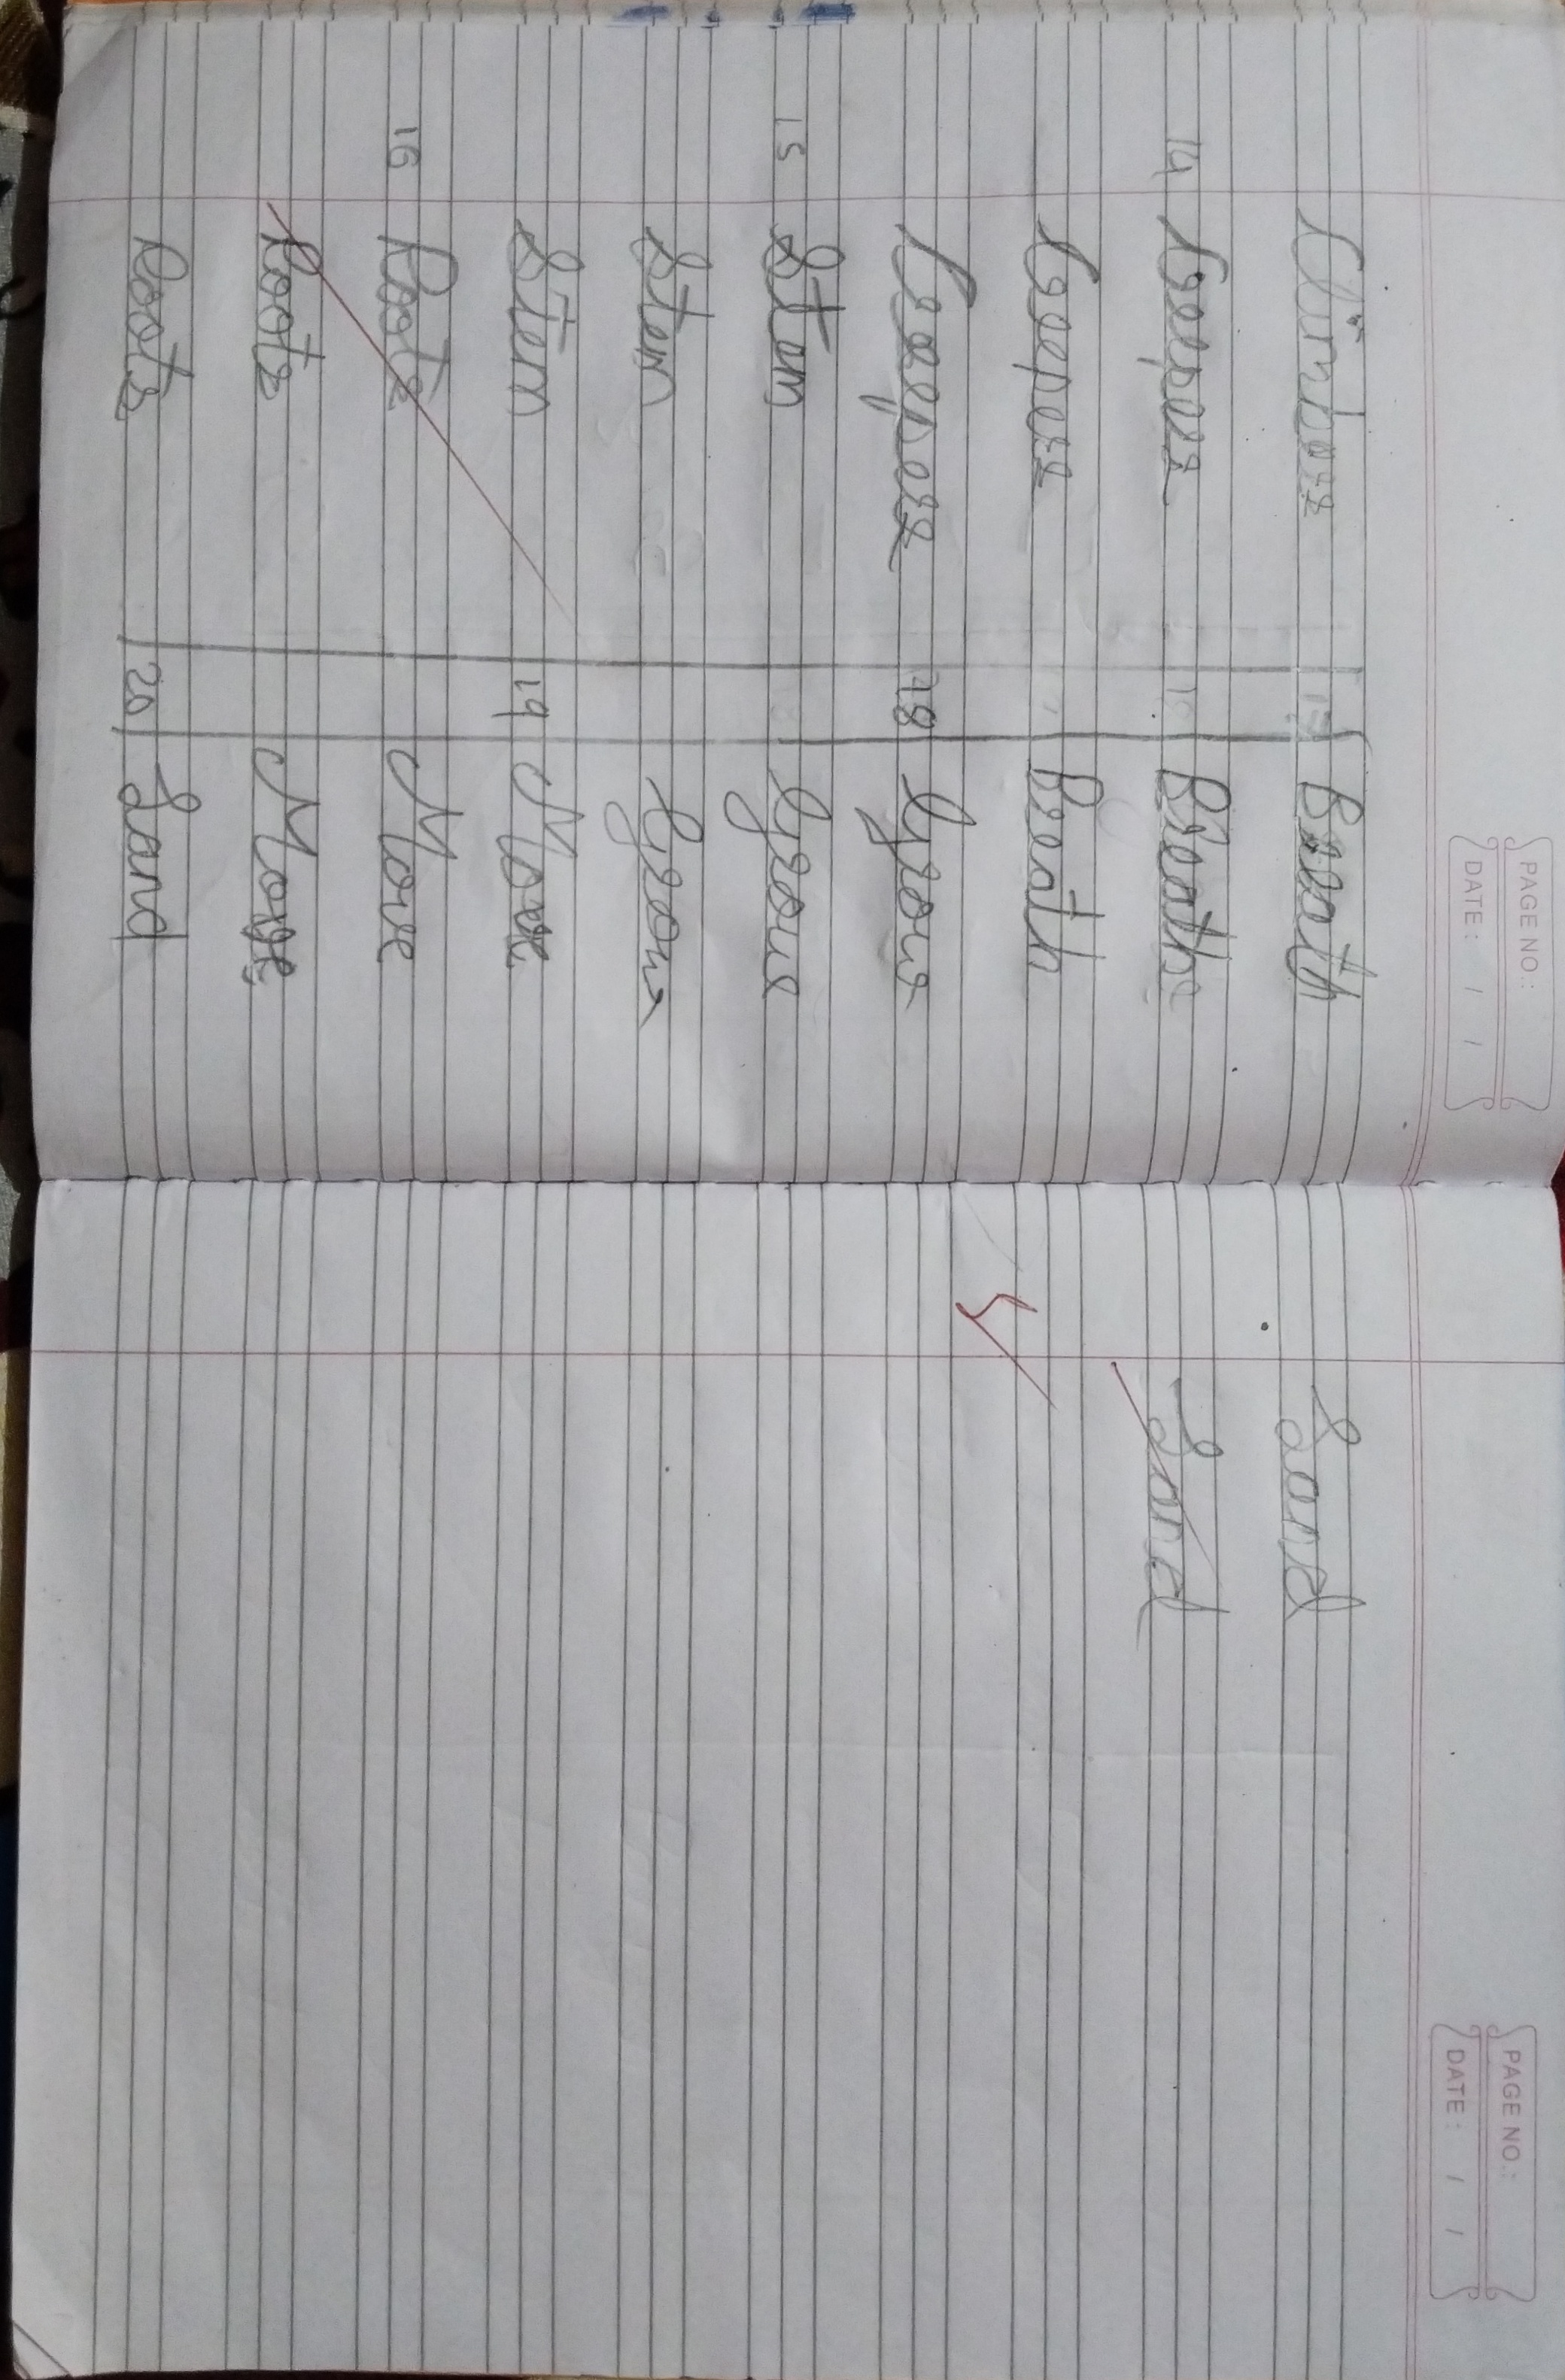 PAGE NO.:
DATE: / /
Climbers
14 Creepers
Creepers
Creepers
15 Stem
Stem
Stem
16 Roots
Roots
Roots
17 Breath
Breath
Breath
18 Grow
Grow
Grow
19 Move
Move
Move
20 Land
PAGE NO.:
DATE: / /
Land
Land